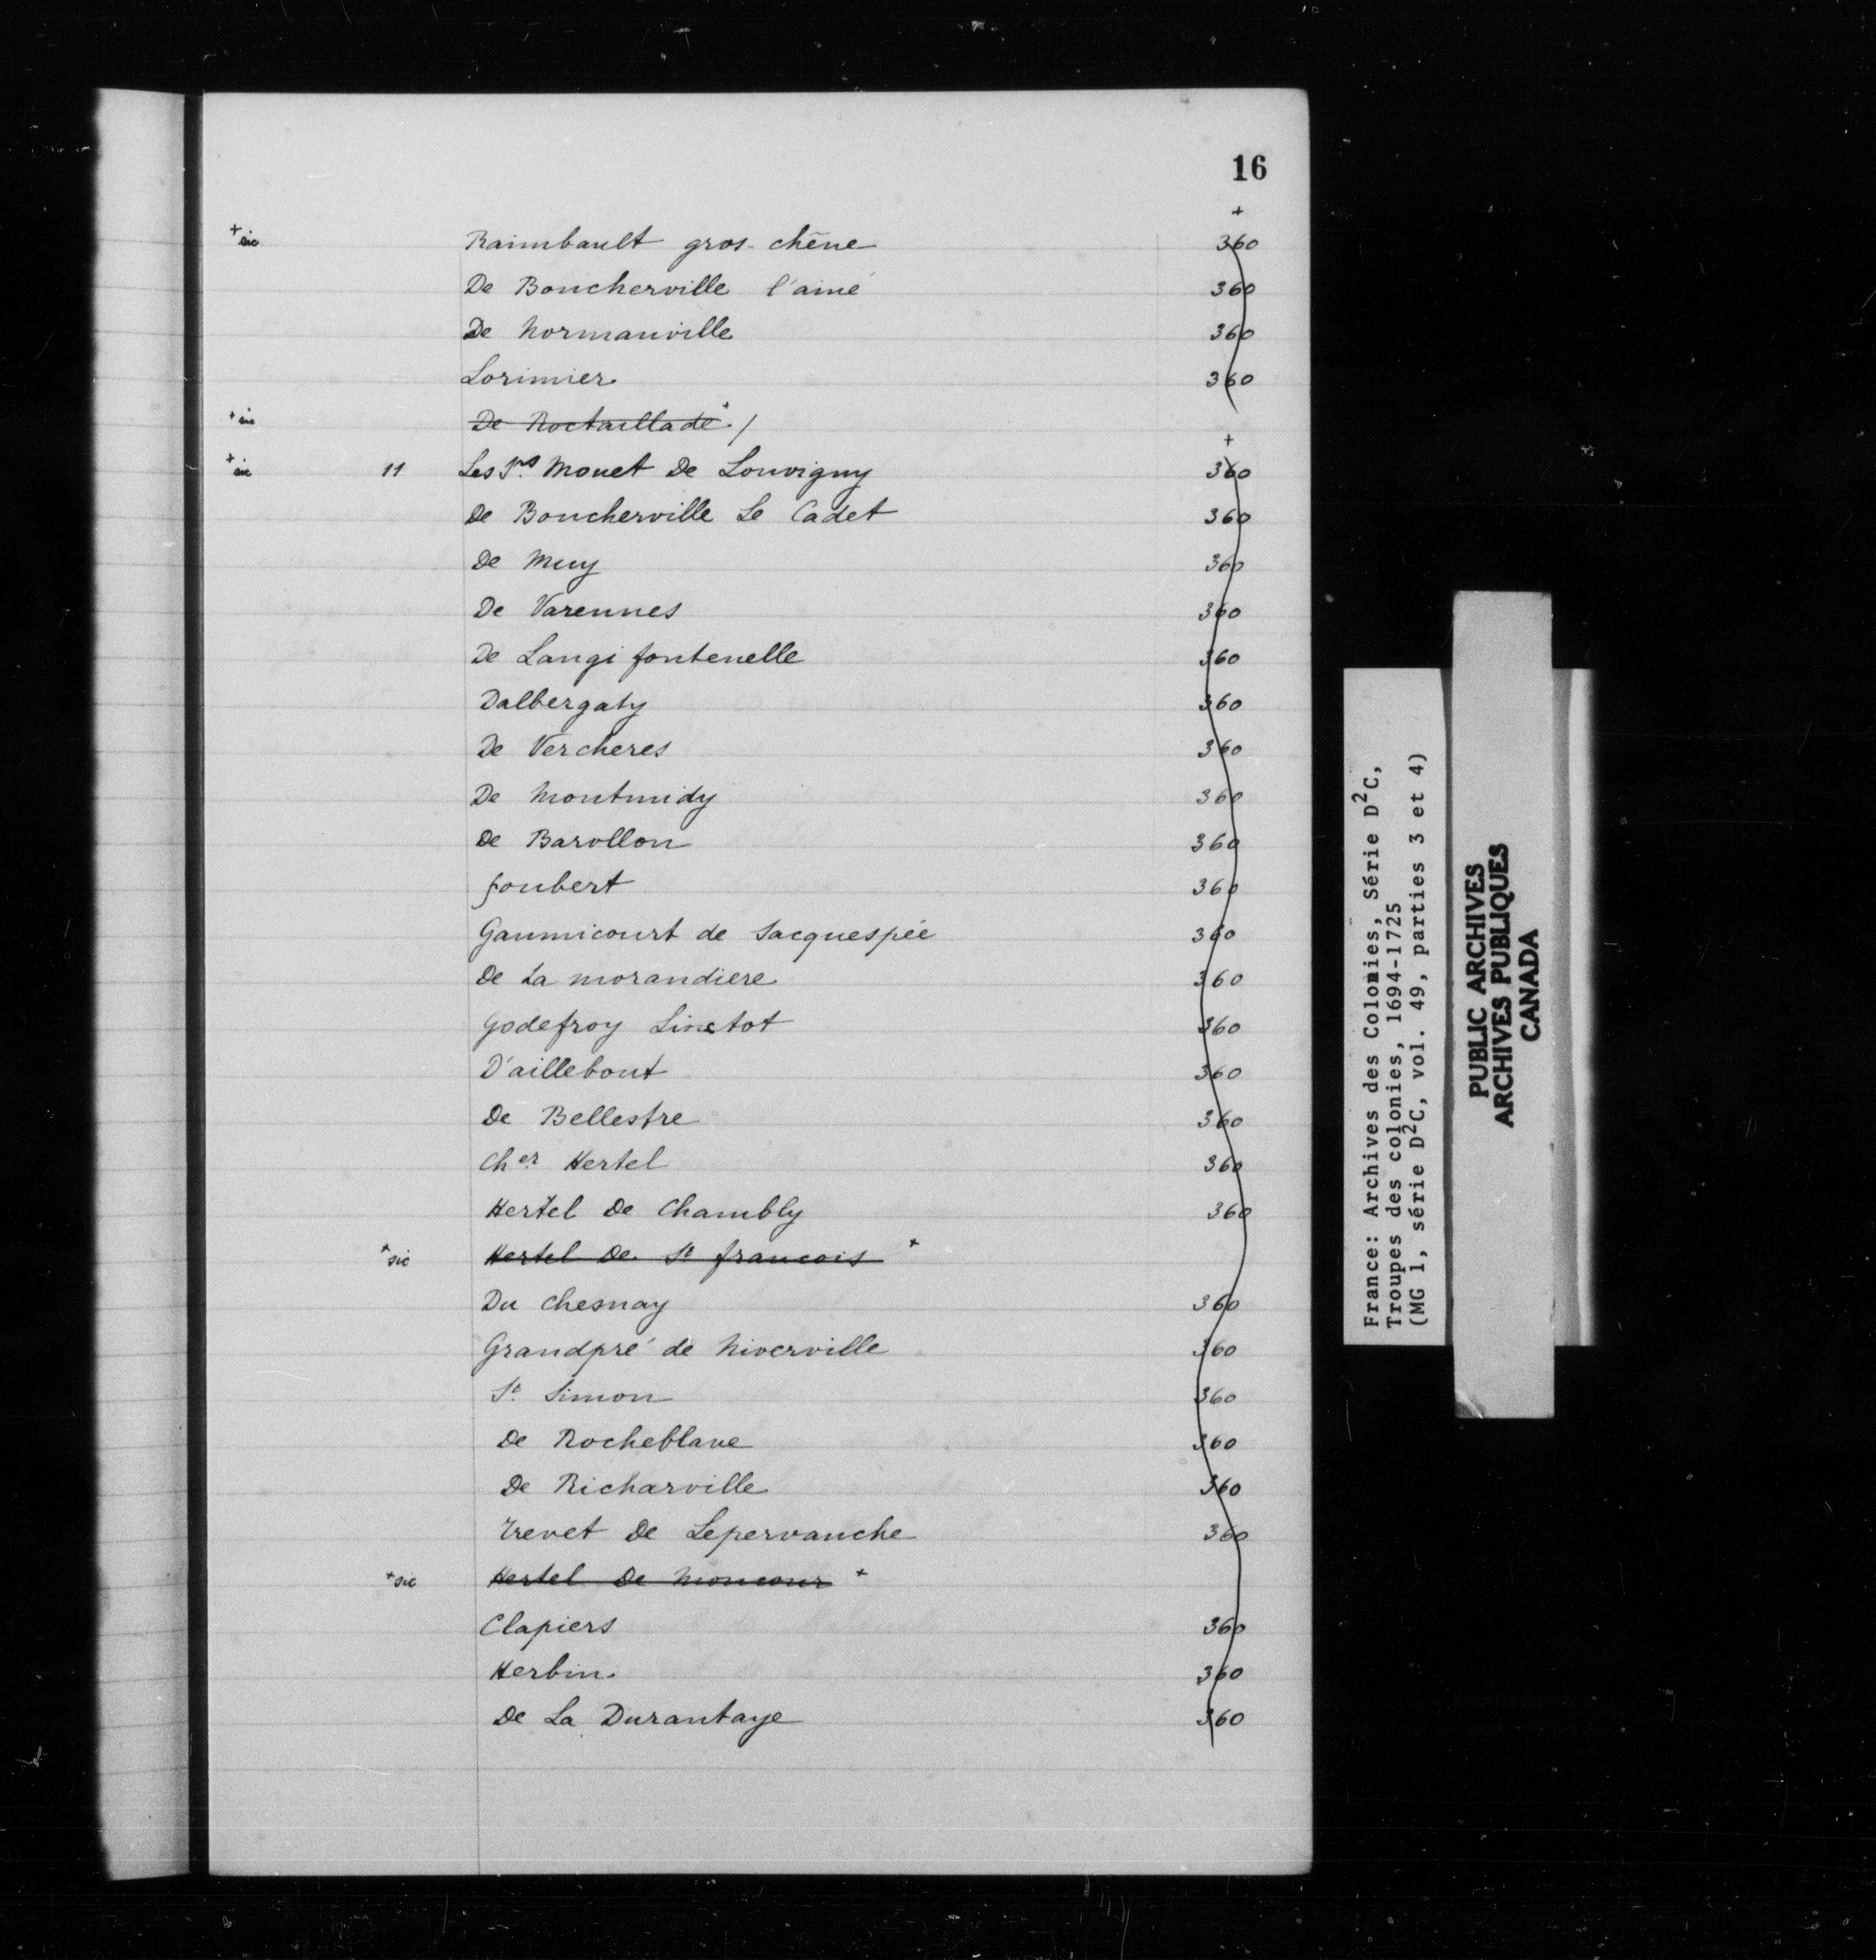 16
+
+sic Raimbault gros-chêne 360
De Boucherville l'ainé 360
De Normanville 360
Lorimier 360
+sic De Roctaillade+./
+
+sic 11 Les Srs Monet De Louvigny 360
De Boucherville Le Cadet 360
De Muy 360
De Varennes 360
De Langi fontenelle 360
Dalbergaty 360
De Vercheres 360
De Montmidy 360
De Barollon 360
Joubert 360
Gannicourt de Sacquespée 360
De La morandiere 360
Godefroy Linctot 360
D'aillebout 360
De Bellestre 360
Cher Hertel 360
Hertel De Chambly 360
+sic Hertel De St francois +
Du Chesnay 360
Grandpré de Niverville 360
St Simon 360
De Rocheblave 360
De Richarville 360
Trevet De Lepervanche 360
+sic Hertel De Moncour +
Clapiers 360
Herbin 360
De La Durantaye 360
France: Archives des Colonies, Série D²C,
Troupes des colonies, 1694-1725
(MG 1, série D²C, vol. 49, parties 3 et 4)
PUBLIC ARCHIVES
ARCHIVES PUBLIQUES
CANADA